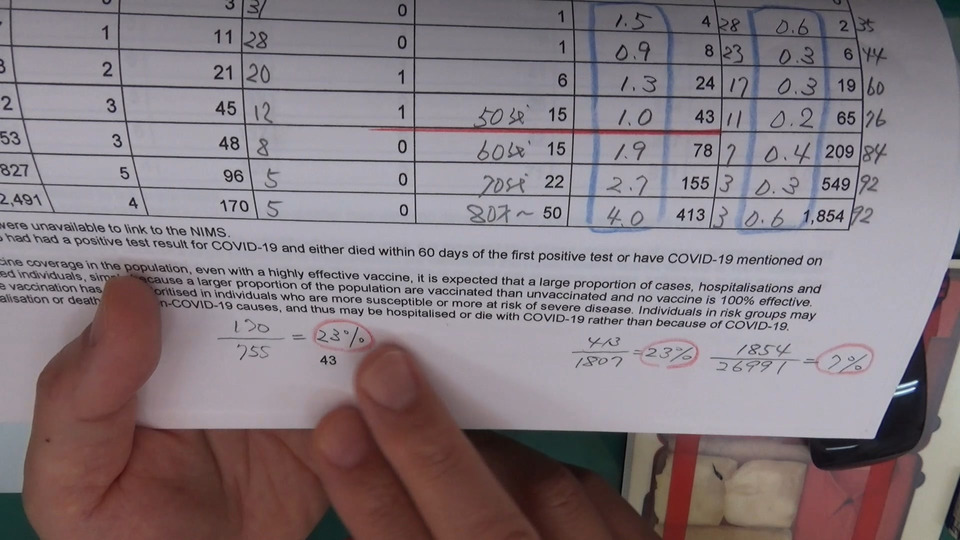 3 3/ 0 1 1.5 4 28 0.6 2 35
1 11 28 0 1 0.9 8 23 0.3 6 44
2 21 20 1 6 1.3 24 17 0.3 19 60
2 3 45 12 1 50歳 15 1.0 43 11 0.2 65 76
53 3 48 8 0 60歳 15 1.9 78 7 0.4 209 84
827 5 96 5 0 70歳 22 2.7 155 3 0.3 549 92
2,491 4 170 5 0 80才~ 50 4.0 413 3 0.6 1,854 92
were unavailable to link to the NIMS.
had had a positive test result for COVID-19 and either died within 60 days of the first positive test or have COVID-19 mentioned on
cine coverage in the population, even with a highly effective vaccine, it is expected that a large proportion of cases, hospitalisations and
ed individuals, because a larger proportion of the population are vaccinated than unvaccinated and no vaccine is 100% effective.
vaccination has in individuals who are more susceptible or more at risk of severe disease. Individuals in risk groups may
alisation or death n-COVID-19 causes, and thus may be hospitalised or die with COVID-19 rather than because of COVID-19.
170/755 = 23% 413/1807 = 23% 1854/26991 = 7%
43